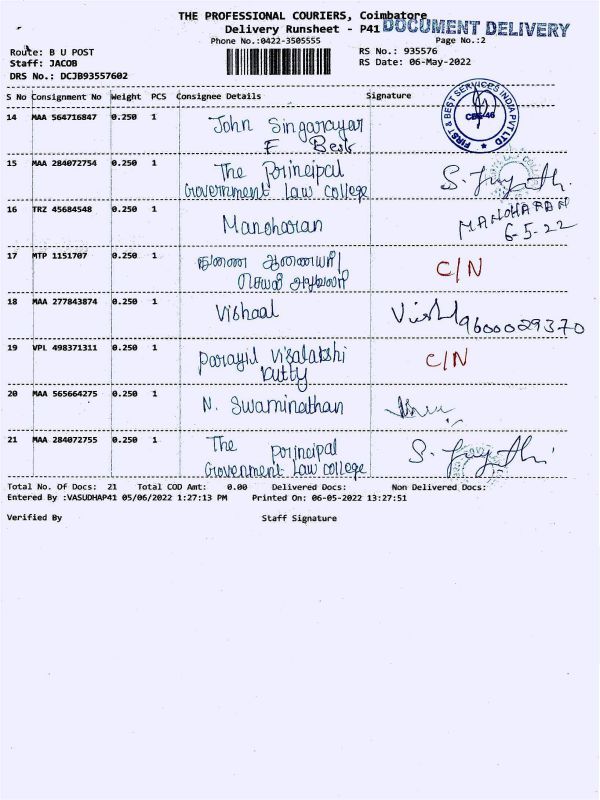 THE PROFESSIONAL COURIERS, Coimbatore
Delivery Runsheet - P41 DOCUMENT DELIVERY
Phone No.:0422-3505555 Page No.:2
Route: B U POST RS No.: 935576
Staff: JACOB RS Date: 06-May-2022
DRS No.: DCJB93557602
S No Consignment No Weight PCS Consignee Details Signature
14 MAA 564716847 0.250 1 John Singarayar
F Best
FIRST & BEST SERVICES INDIA PVT LTD
CBE-46
15 MAA 284072754 0.250 1 The Principal
Government Law College
16 TRZ 45684548 0.250 1 Manoharan MANOHARAN
6-5-22
17 MTP 1151707 0.250 1 துணை ஆணையர் C/N
18 MAA 277843874 0.250 1 Vishaal 9600029370
19 VPL 498371311 0.250 1 Parayil Visalakshi C/N
Kutty
20 MAA 565664275 0.250 1 N. Swaminathan
21 MAA 284072755 0.250 1 The Principal
Government Law College
Total No. Of Docs: 21 Total COD Amt: 0.00 Delivered Docs: Non Delivered Docs:
Entered By :VASUDHAP41 05/06/2022 1:27:13 PM Printed On: 06-05-2022 13:27:51
Verified By Staff Signature